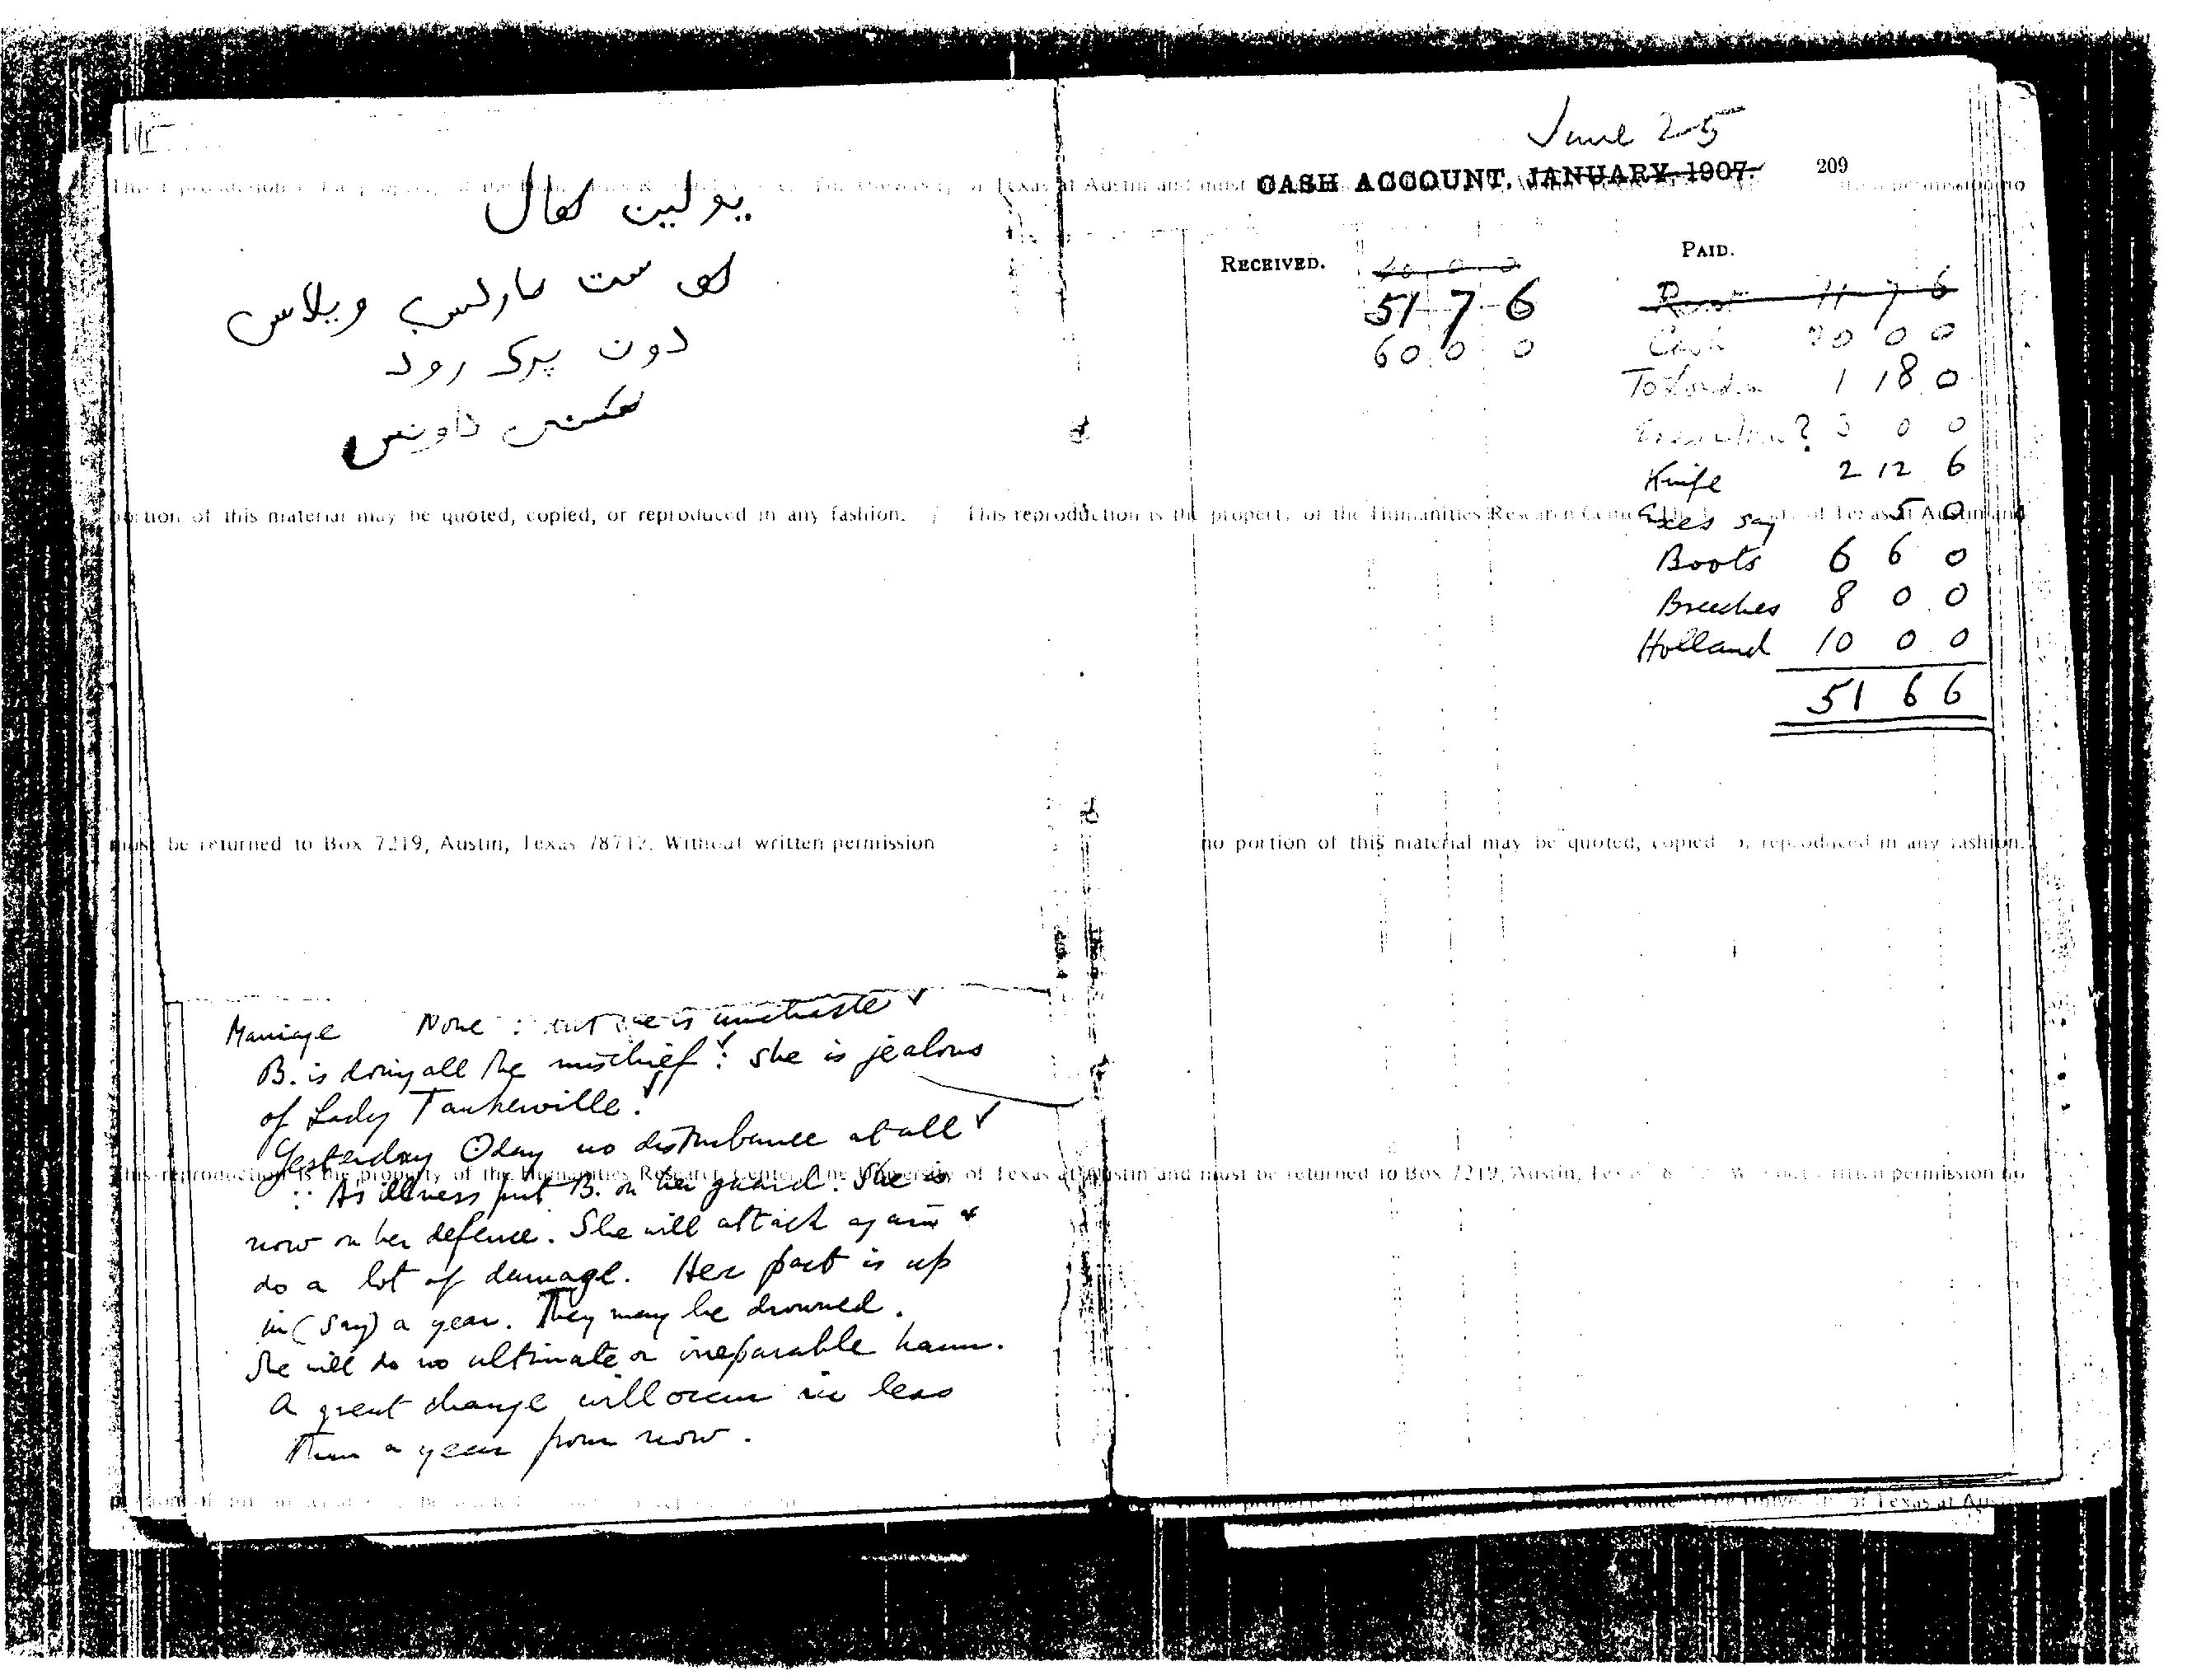 يولين
سنت مارلس ويلاس
دون پرک رود
داونس
Marriage None : but she is unchaste ✓
B. is doing all the mischief ✓ : she is jealous
of Lady Tankerville. ✓
Yesterday Oday no disturbance at all ✓
∵ As illness put B. on her guard. She is
now on her defence. She will attack again &
do a lot of damage. Her part is up
in (say) a year. They may be drowned.
She will do no ultimate or irreparable harm.
A great change will occur in less
than a year from now.
June 25
CASH ACCOUNT, JANUARY, 1907. 209
RECEIVED. PAID.
20 0 0
51 7 6
60 0 0
Rent 11 7 6
Cash 20 0 0
To London 1 18 0
? 3 0 0
Knife 2 12 6
Exes say 5 0
Boots 6 6 0
Breeches 8 0 0
Holland 10 0 0
51 6 6
portion of this material may be quoted, copied, or reproduced in any fashion. / This reproduction is the property of the Humanities Research Center, The University of Texas at Austin and
must be returned to Box 7219, Austin, Texas 78712. Without written permission no portion of this material may be quoted, copied or reproduced in any fashion.
This reproduction is the property of the Humanities Research Center, The University of Texas at Austin and must be returned to Box 7219, Austin, Texas 78712. Without written permission no